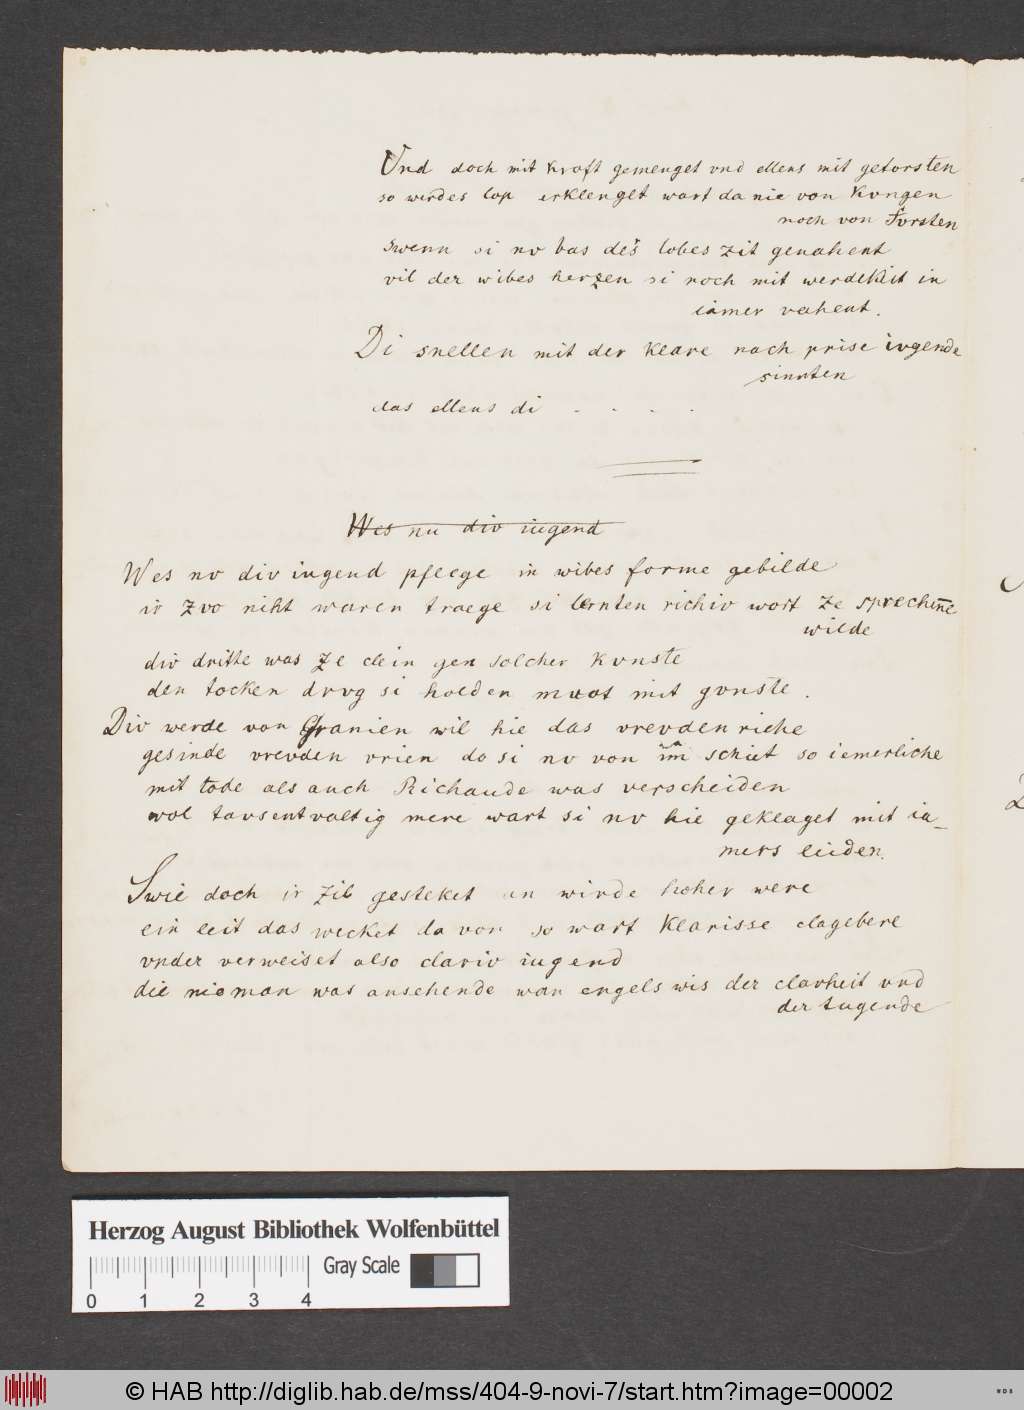 Und doch mit kraft gemenget vnd ellens mit getorsten
so werdes lop erklenglt wart da nie von Kvngen
noch von Fvrsten
swenn si nv bas des lobes zit genahent
vil der wibes herzen si noch mit werdekeit in
iamer vahent.
Di snellen mit der klare nach prise ivgende
sinnten
das ellens di . . . .
Wes nu div iugend
Wes nv div iugend pflege in wibes forme gebilde
ir zvo niht waren traege si lernten richiv wort ze sprechēne
wilde
div dritte was ze clein gen solcher kvnste
den tocken drvg si holden mvot mit gvnste.
Div werde von Granien wil hie das vrevden riche
gesinde vrevden vrien do si nv von im schiet so iemerliche
mit tode als auch Richaude was verscheiden
wol tavsentvaltig mere wart si nv hie geklaget mit ia-
mers leiden.
Swie doch ir zil gesteket an wirde hoher were
ein leit das wecket da von so wart Klarisse clagebere
vnder verweiset also clariv iugend
die nieman was ansehende wan engels wis der clarheit vnd
der tugende
Herzog August Bibliothek Wolfenbüttel
Gray Scale
0 1 2 3 4
© HAB http://diglib.hab.de/mss/404-9-novi-7/start.htm?image=00002